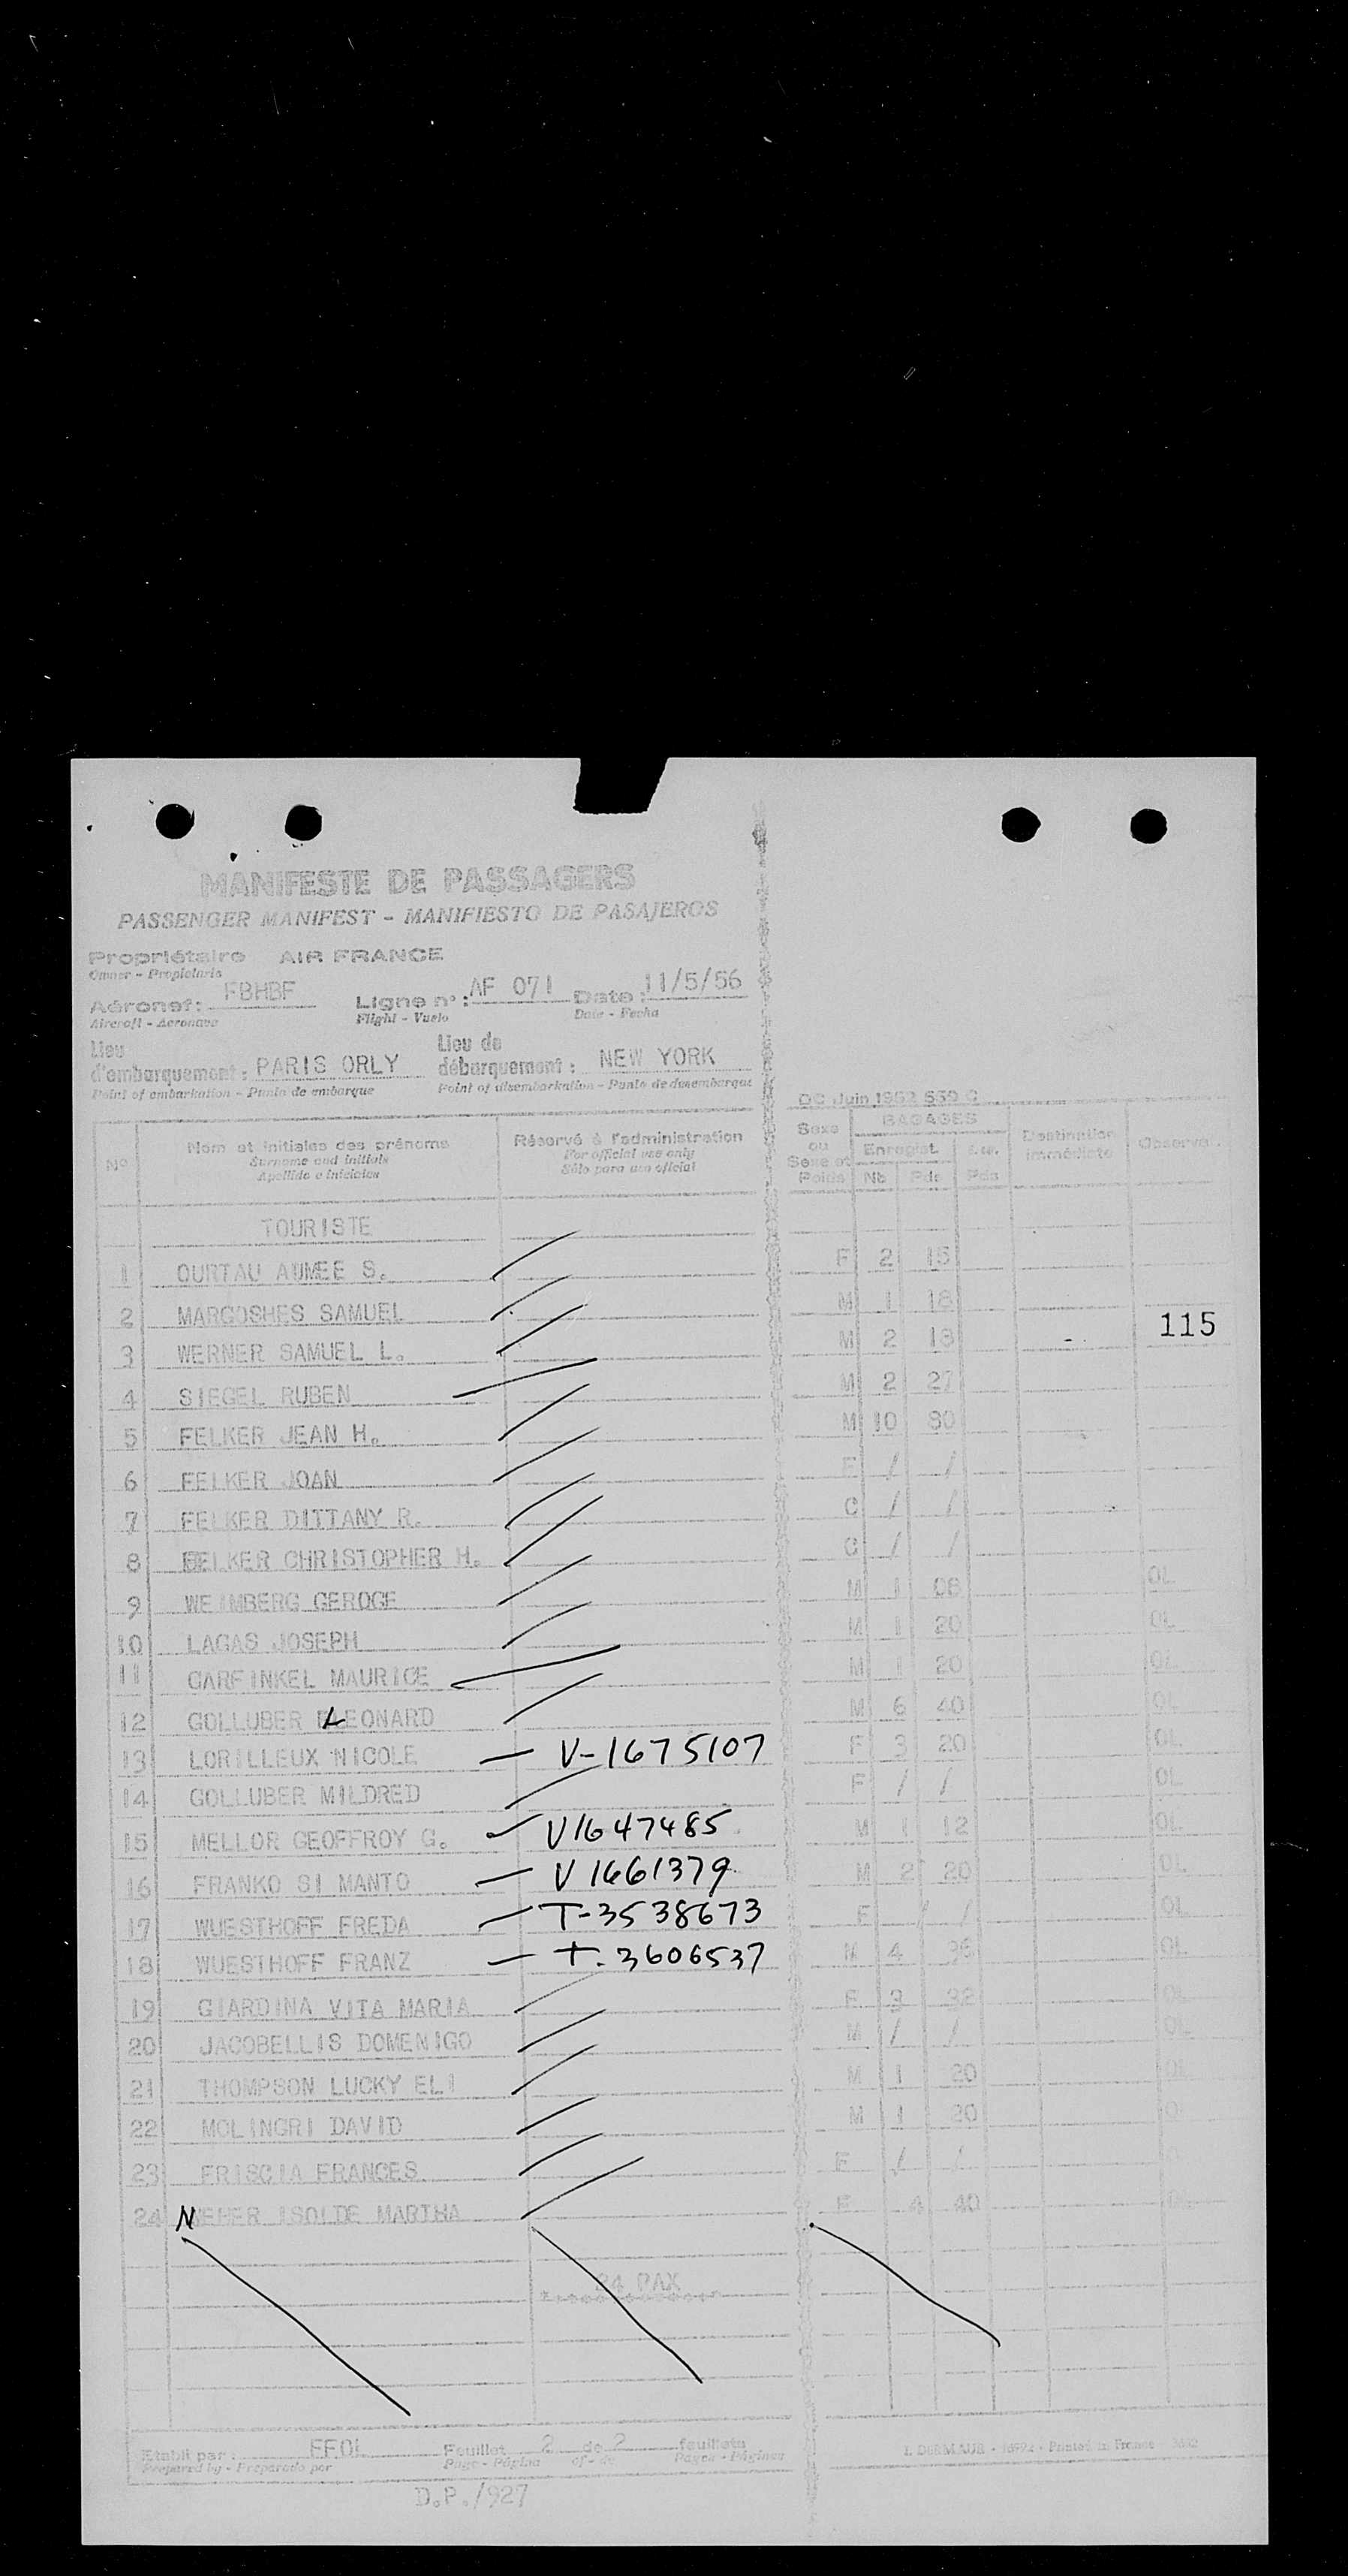 MANIFESTE DE PASSAGERS
PASSENGER MANIFEST - MANIFIESTO DE PASAJEROS
Propriétaire AIR FRANCE
Owner - Propietario
Aéronef: FBHBF Ligne n°: AF 071 Date: 11/5/56
Aircraft - Aeronave Flight - Vuelo Date - Fecha
Lieu d'embarquement: PARIS ORLY Lieu de débarquement: NEW YORK
Point of embarkation - Punto de embarque Point of disembarkation - Punto de desembarque
DC Juin 1952 539 C
N° Nom et initiales des prénoms Réservé à l'administration Sexe ou Sexe et Poids BAGAGES Destination immédiate Observat.
Surname and initials For official use only Enregist.
Apellido e iniciales Sólo para uso oficial Nb Pds Pds
TOURISTE
1 OURTAU AUMEE S. F 2 15
2 MARGOSHES SAMUEL M 1 18
115
3 WERNER SAMUEL L. M 2 18
4 SIEGEL RUBEN M 2 27
5 FELKER JEAN H. M 10 90
6 FELKER JOAN F / /
7 FELKER DITTANY R. C / /
8 FELKER CHRISTOPHER H. C / /
9 WEIMBERG GEROGE M 1 08 OL
10 LAGAS JOSEPH M 1 20 OL
11 GARFINKEL MAURICE M 1 20 OL
12 GOLLUBER LEONARD M 6 40 OL
13 LORILLEUX NICOLE V-1675107 F 3 20 OL
14 GOLLUBER MILDRED F / / OL
15 MELLOR GEOFFROY G. V1647485 M 1 12 OL
16 FRANKO SI MANTO V 1661379 M 2 20 OL
17 WUESTHOFF FREDA T-3538673 F / / OL
18 WUESTHOFF FRANZ T-3606537 M 4 OL
19 GIARDINA VITA MARIA F 3 32 OL
20 JACOBELLIS DOMENIGO M / / OL
21 THOMPSON LUCKY ELI M 1 20 OL
22 MOLINGRI DAVID M 1 20 OL
23 FRISCIA FRANCES F / /
24 NEHER ISOLDE MARTHA F 4 40
24 PAX
Etabli par: FFOL Feuillet 2 de 2 feuillets
Prepared by - Preparado por Page - Página of - de Pages - Páginas
Printed in France
D.P./927